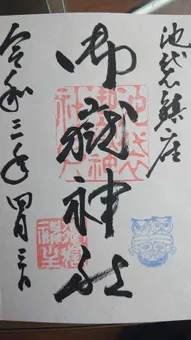 池袋鎮座
御嶽神社
令和三年四月三日